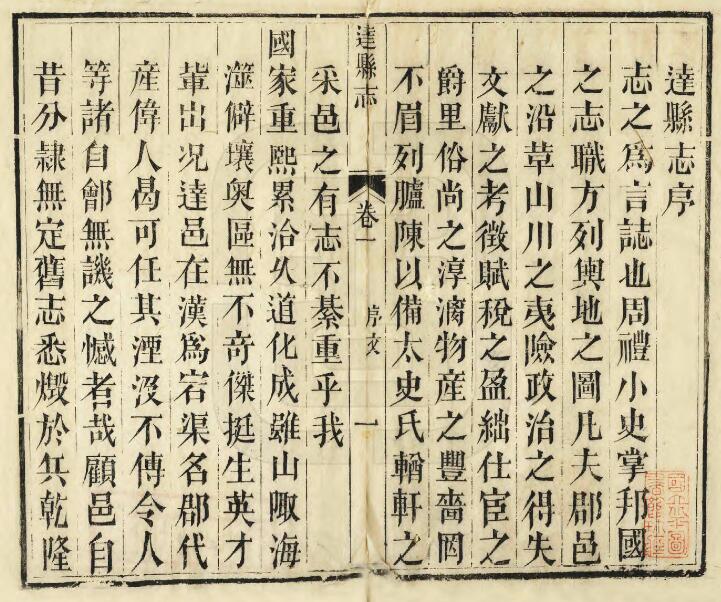 達縣志序
志之爲言誌也周禮小史掌邦國
之志職方列輿地之圖凡夫郡邑
之沿革山川之夷險政治之得失
文獻之考徵賦稅之盈絀仕宦之
爵里俗尚之淳漓物産之豐嗇罔
不眉列臚陳以備太史氏輶軒之
達縣志
卷一
序文
一
采邑之有志不綦重乎我
國家重熙累洽久道化成雖山陬海
澨僻壤奥區無不奇傑挺生英才
輩出况達邑在漢爲宕渠名郡代
産偉人曷可任其湮沒不傳令人
等諸自鄶無譏之憾者哉顧邑自
昔分隸無定舊志悉燬於兵乾隆